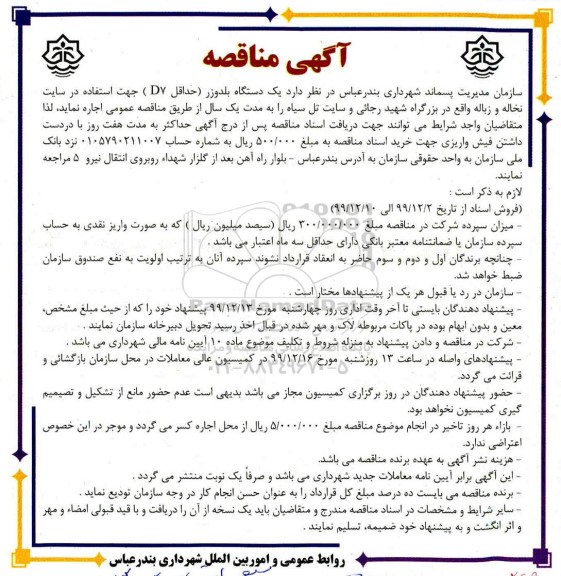 آگهی مناقصه
سازمان مدیریت پسماند شهرداری بندرعباس در نظر دارد یک دستگاه بلدوزر (حداقل D۷ ) جهت استفاده در سایت
نخاله و زباله واقع در بزرگراه شهید رجائی و سایت تل سیاه را به مدت یک سال از طریق مناقصه عمومی اجاره نماید، لذا
متقاضیان واجد شرایط می توانند جهت دریافت اسناد مناقصه پس از درج آگهی حداکثر به مدت هفت روز با دردست
داشتن فیش واریزی جهت خرید اسناد مناقصه به مبلغ ۵۰۰/۰۰۰ ریال به شماره حساب ۰۱۰۵۷۹۰۲۱۱۰۰۷ نزد بانک
ملی سازمان به واحد حقوقی سازمان به آدرس بندرعباس - بلوار راه آهن بعد از گلزار شهداء روبروی انتقال نیرو ۵ مراجعه
نمایند.
لازم به ذکر است :
(فروش اسناد از تاریخ ۹۹/۱۲/۲ الی ۹۹/۱۲/۱۰)
- میزان سپرده شرکت در مناقصه مبلغ ۳۰۰/۰۰۰/۰۰۰ ریال (سیصد میلیون ریال ) که به صورت واریز نقدی به حساب
سپرده سازمان یا ضمانتنامه معتبر بانکی دارای حداقل سه ماه اعتبار می باشد .
- چنانچه برندگان اول و دوم و سوم حاضر به انعقاد قرارداد نشوند سپرده آنان به ترتیب اولویت به نفع صندوق سازمان
ضبط خواهد شد.
- سازمان در رد یا قبول هر یک از پیشنهادها مختار است .
- پیشنهاد دهندگان بایستی تا آخر وقت اداری روز چهارشنبه مورخ ۹۹/۱۲/۱۳ پیشنهاد خود را که از حیث مبلغ مشخص،
معین و بدون ابهام بوده در پاکات مربوطه لاک و مهر شده در قبال اخذ رسید تحویل دبیرخانه سازمان نمایند .
- شرکت در مناقصه و دادن پیشنهاد به منزله شروط و تکلیف موضوع ماده ۱۰ آیین نامه مالی شهرداری می باشد .
- پیشنهادهای واصله در ساعت ۱۳ روزشنبه مورخ ۹۹/۱۲/۱۶ در کمیسیون عالی معاملات در محل سازمان بازگشائی و
قرائت می گردد.
- حضور پیشنهاد دهندگان در روز برگزاری کمیسیون مجاز می باشد بدیهی است عدم حضور مانع از تشکیل و تصیمیم
گیری کمیسیون نخواهد بود.
- بازاء هر روز تاخیر در انجام موضوع مناقصه مبلغ ۵/۰۰۰/۰۰۰ ریال از محل اجاره کسر می گردد و موجر در این خصوص
اعتراضی ندارد.
- هزینه نشر آگهی به عهده برنده مناقصه می باشد.
- این آگهی برابر آیین نامه معاملات جدید شهرداری می باشد و صرفاً یک نوبت منتشر می گردد .
- برنده مناقصه می بایست ده درصد مبلغ کل قرارداد را به عنوان حسن انجام کار در وجه سازمان تودیع نماید .
- سایر شرایط و مشخصات در اسناد مناقصه مندرج و متقاضیان باید یک نسخه از آن را دریافت و با قید قبولی امضاء و مهر
و اثر انگشت و به پیشنهاد خود ضمیمه، تسلیم نمایند .
روابط عمومی و اموربین الملل شهرداری بندرعباس
ParsNamadData
۰۲۱-۸۸۳۴۹۶۷۰-۵